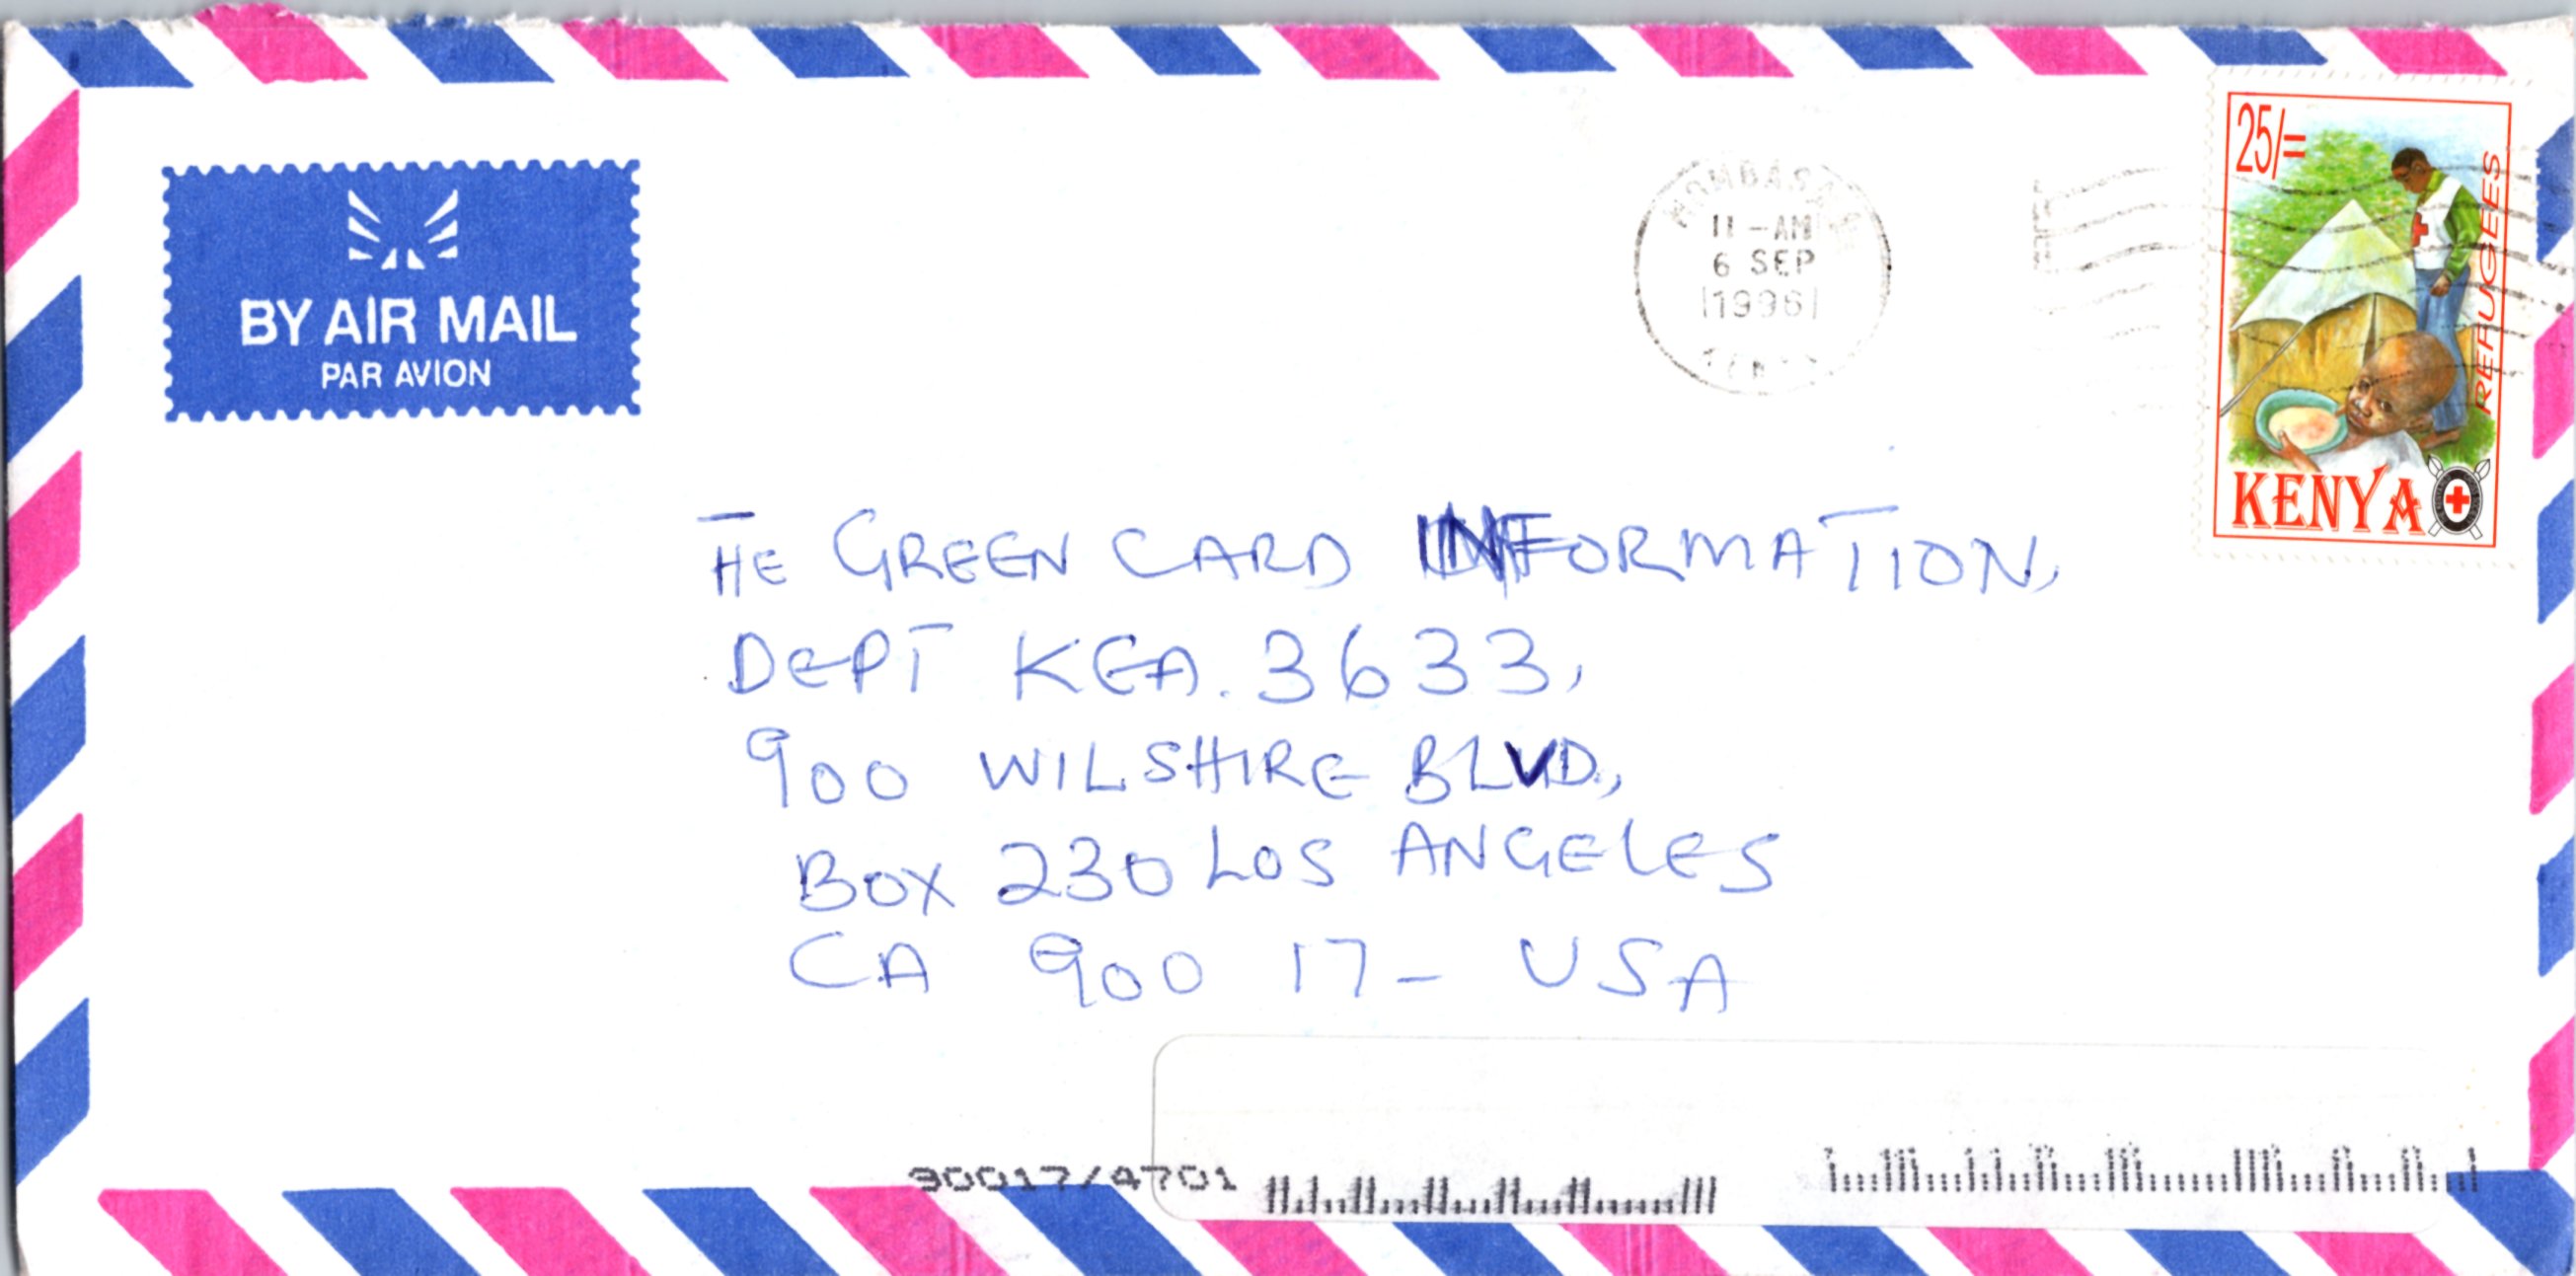 BY AIR MAIL
PAR AVION
MOMBASA
11-AM
6 SEP
1996
25/=
REFUGEES
KENYA
THE GREEN CARD INFORMATION,
DEPT KEA. 3633,
900 WILSHIRE BLVD.,
BOX 230 LOS ANGELES
CA 900 17- USA
90017/4701